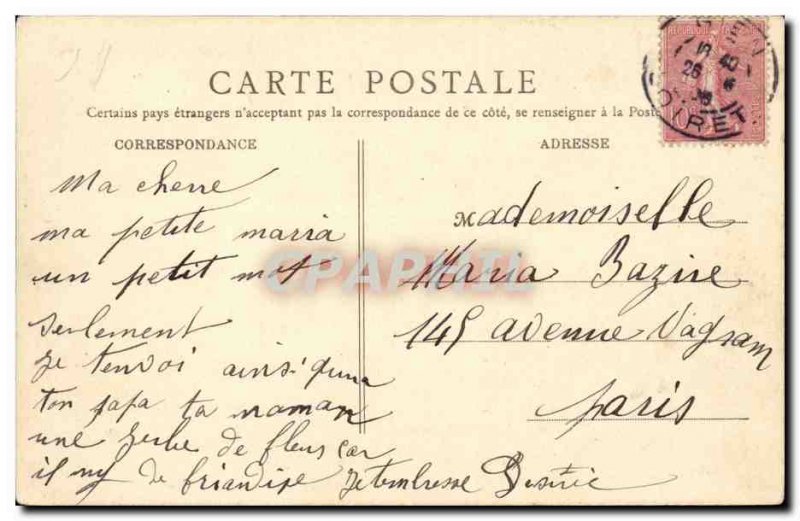 CARTE POSTALE
Certains pays étrangers n'acceptent pas la correspondance de ce côté, se renseigner à la Poste
CORRESPONDANCE
Ma cherre
ma petite maria
un petit mot
seulement
je t'envoi ainsi quna
ton papa ta maman
une
de fleurs car
il ny de friandise Je tembrasse
ADRESSE
Mademoiselle
Maria Bazire
145 avenue Vagram
paris
GIEN
26
LOIRET
CPAPHIL